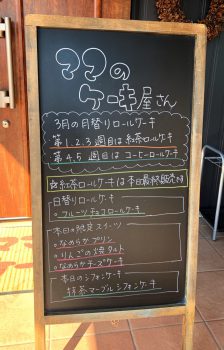 ママの
ケーキ屋さん
3月の月替りロールケーキ
第1,2,3週目は紅茶ロールケーキ
第4,5週目はコーヒーロールケーキ
☆紅茶ロールケーキは本日最終販売日
日替りロールケーキ
○フルーツチョコロールケーキ
本日の限定スイーツ
○なめらかプリン
○りんごの焼タルト
○なめらかチーズケーキ
本日のシフォンケーキ
抹茶マーブルシフォンケーキ